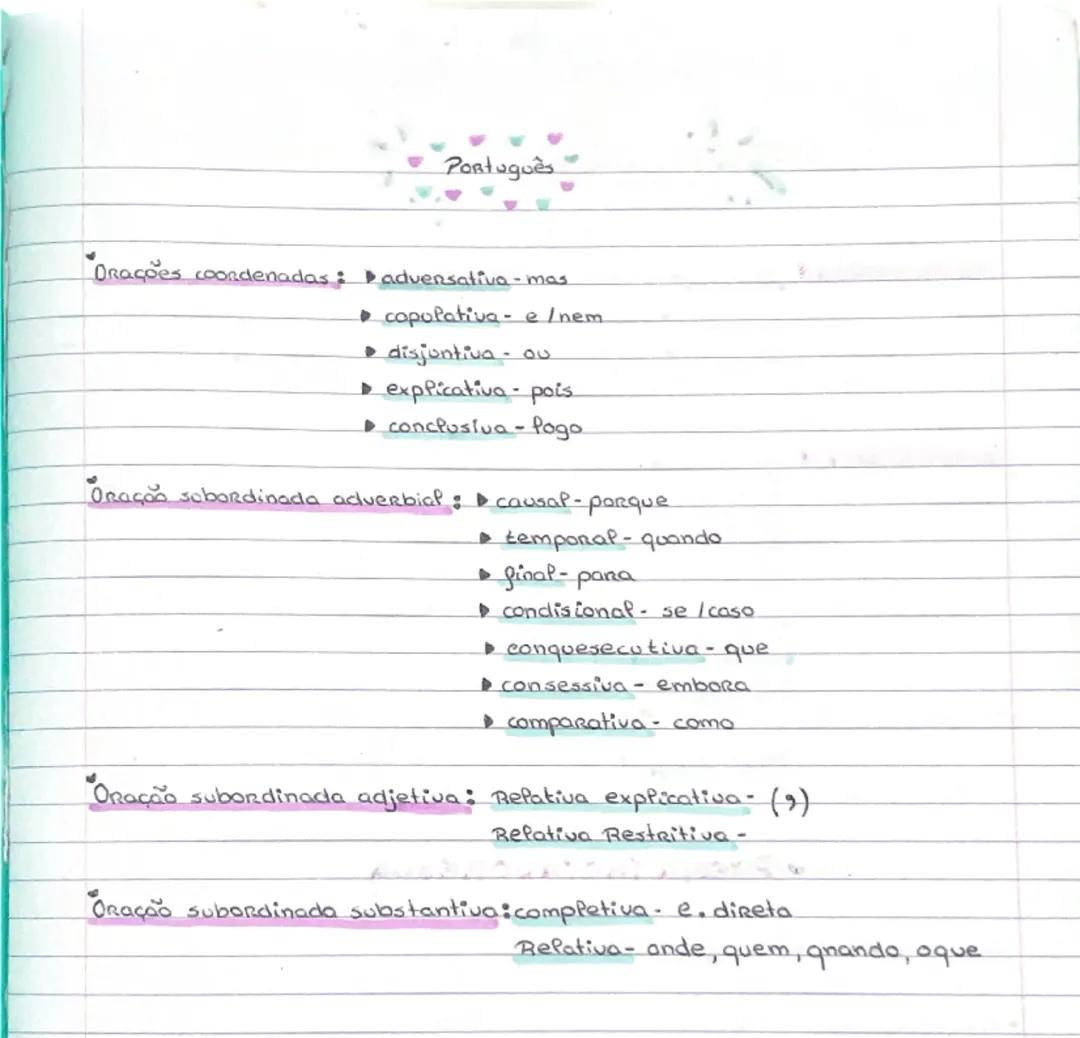 Português
Orações coordenadas: ▸ adversativa - mas
▸ copulativa - e / nem
▸ disjuntiva - ou
▸ explicativa - pois
▸ conclusiva - logo
Oração subordinada adverbial: ▸ causal - porque
▸ temporal - quando
▸ final - para
▸ condisional - se / caso
▸ conquesecutiva - que
▸ consessiva - embora
▸ comparativa - como
Oração subordinada adjetiva: Relativa explicativa - (,)
Relativa Restritiva -
Oração subordinada substantiva: completiva - e. direta
Relativa - onde, quem, qnando, oque